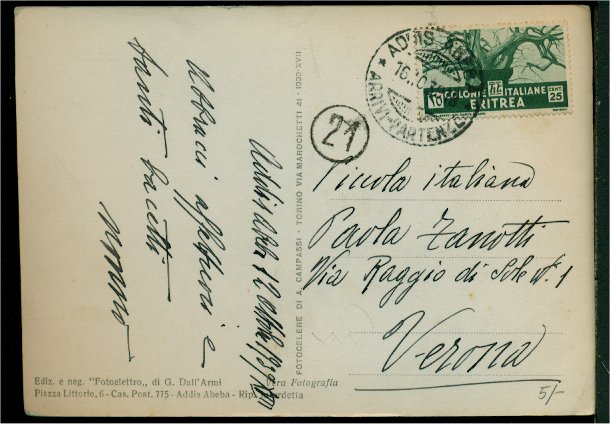 Abbracci affettuosi e
tanti bacetti
nonno
Addis Abeba 12 Ottobre 1939 XVII
FOTOCELERE DI A. CAMPASSI - TORINO VIA MAROCHETTI 41 1939-XVII
ADDIS ABEBA
16.10
ARRIVI-PARTENZE
21
COLONIE ITALIANE
10 CENT. 25
ERITREA
Piccola italiana
Paola Zanotti
Via Raggio di Sole N. 1
Verona
Ediz. e neg. "Fotoelettro,, di G. Dall'Armi Vera Fotografia
Piazza Littorio, 6 - Cas. Post. 775 - Addis Abeba - Rip. interdetta
5/-